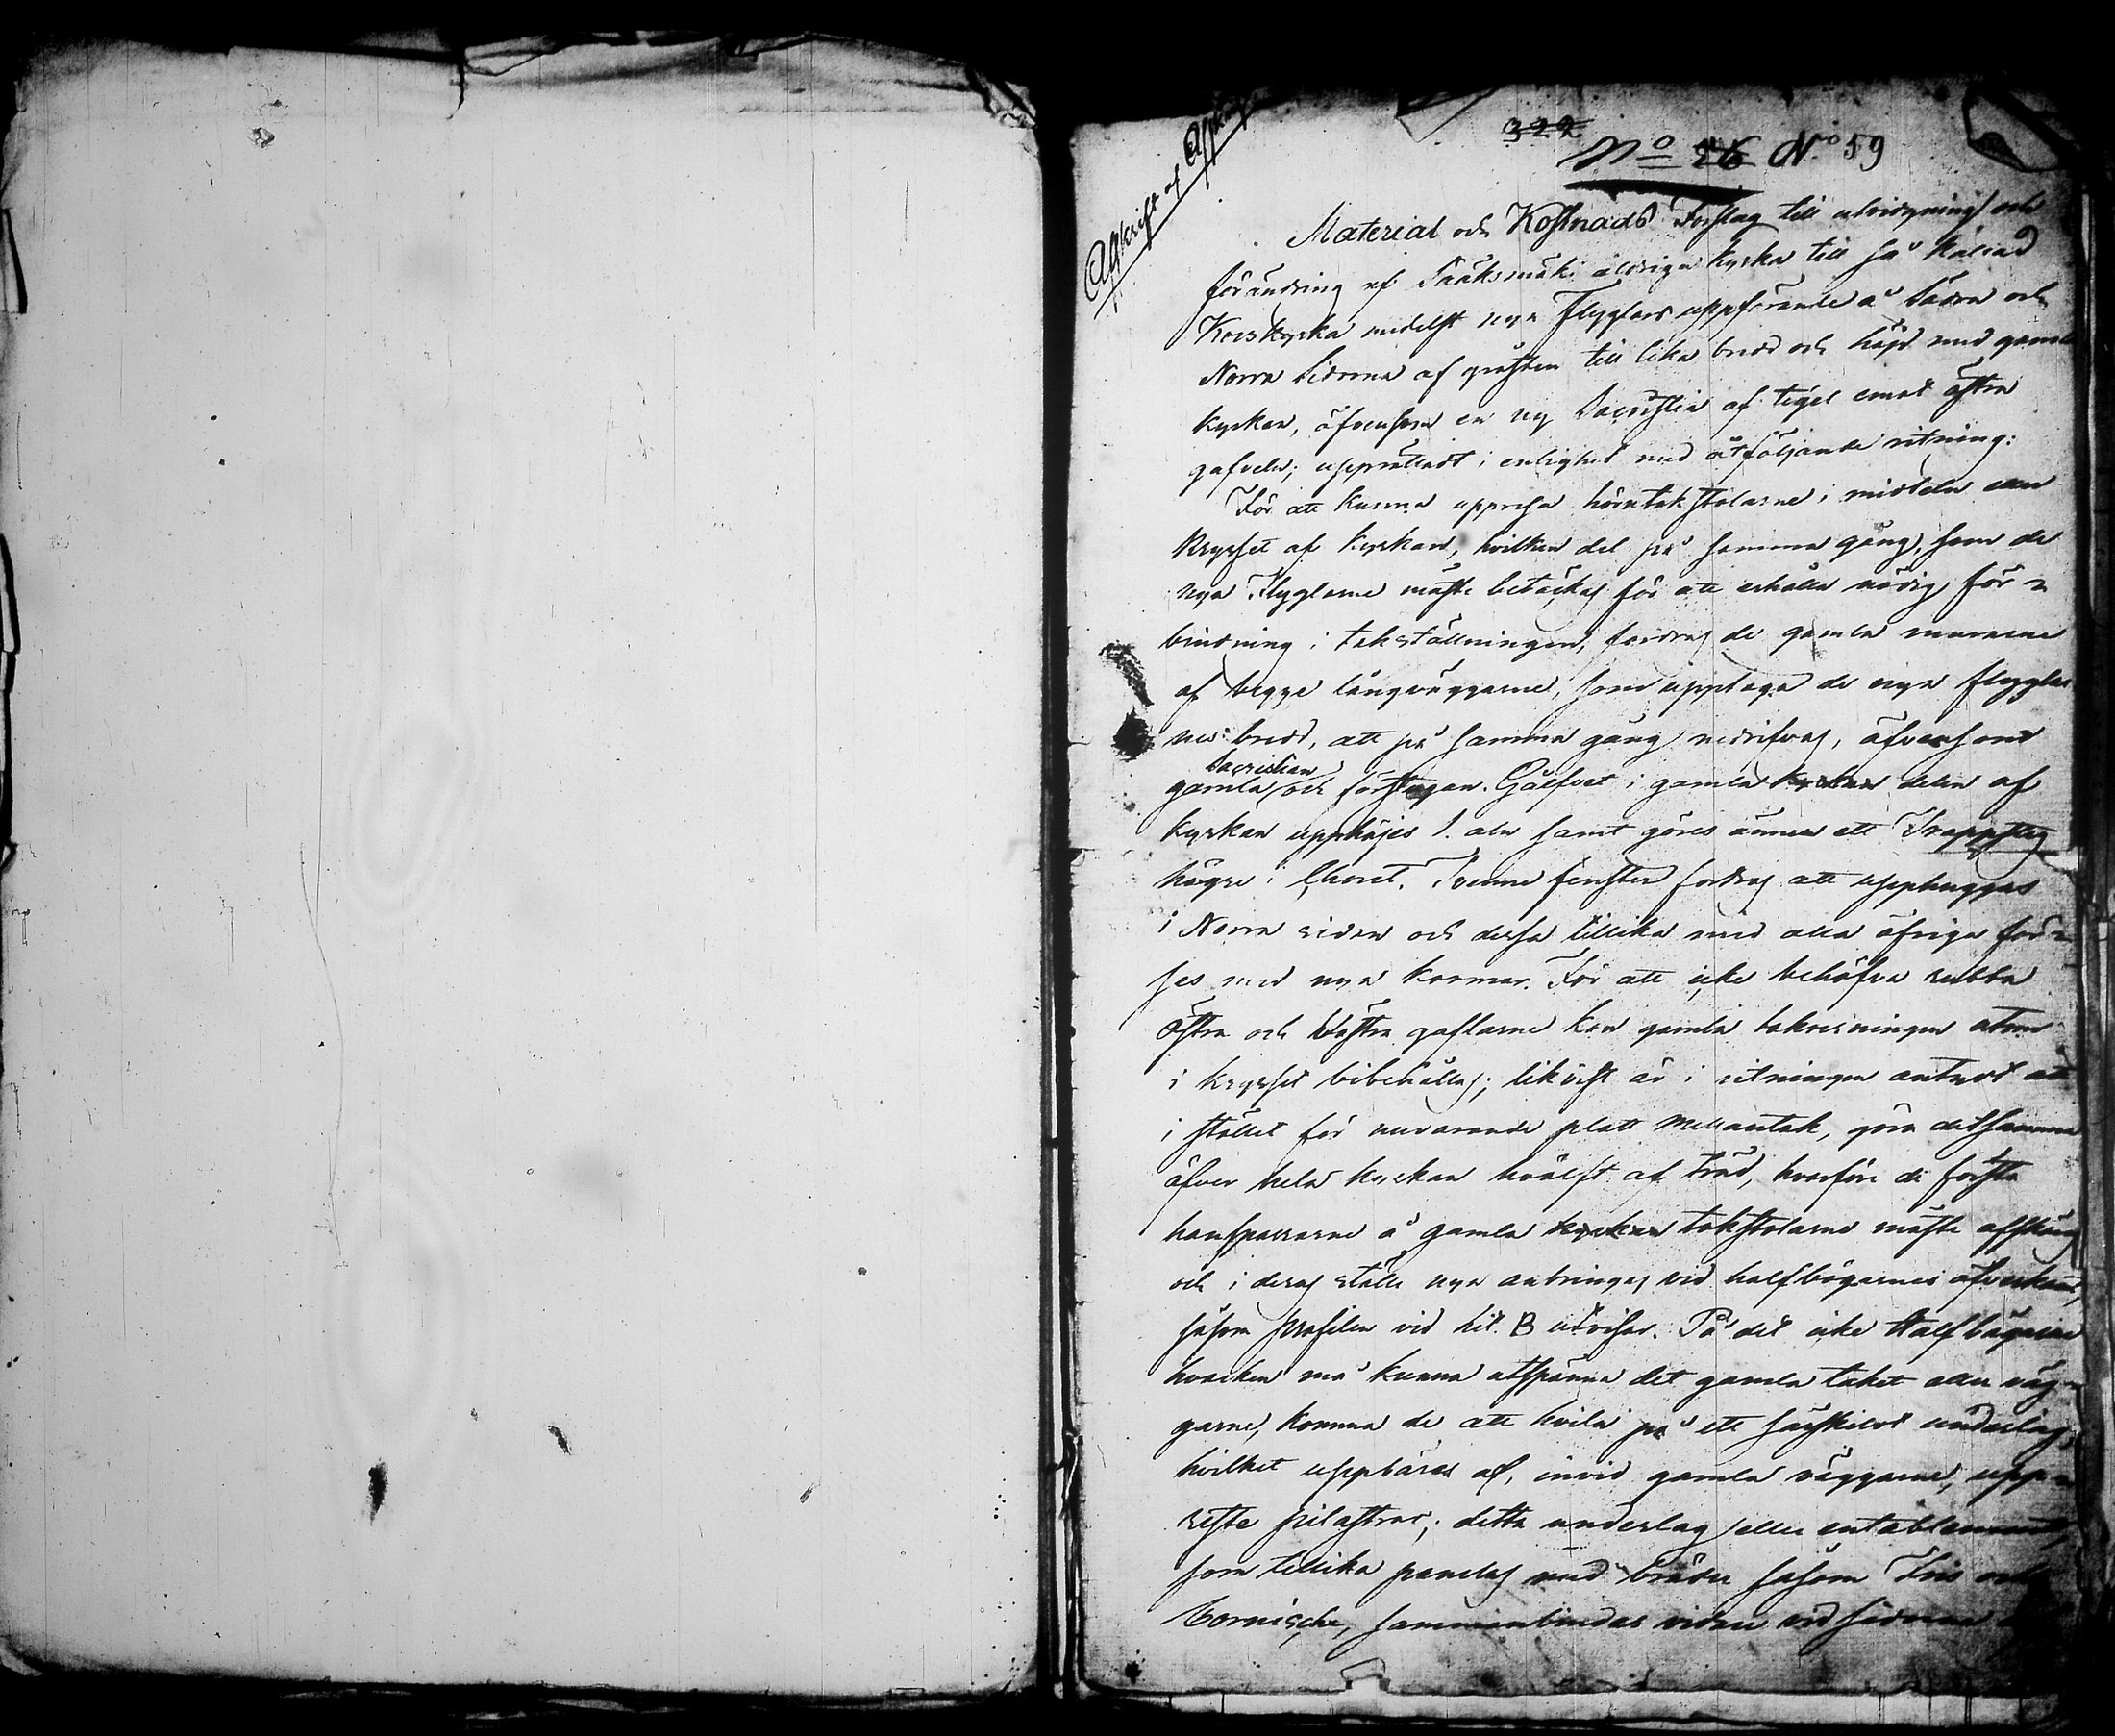 Afskrift af Afskrift
322
No 26 No 59
Material och Kostnads Förslag till utvidgning och
förändring af Sääksmäki åldriga kyrka till så kallad
Korskyrka medelst nya Flyglars uppförande å Södra och
Norra Sidorna af gråsten till lika bredd och höjd med gamla
kyrkan, äfvensom en ny Sacristia af tegel emot östra
gafveln; upprättadt i enlighet med åtföljande ritning:
För att kunna uppresa hörntakstolarne i midteln eller
krysset af kyrkan, hvilken del på samma gång, som de
nya Flyglarne måste betäckas för att erhålla nödig för=
bindning i takställningen, fordras de gamla murarne
af begge långväggarne, som upptaga de nya flyglar
nes bredd, att på samma gång nedrifvas, äfvensom
Sacristian
gamla och förstugan. Gålfvet i gamla kyrkan delen af
kyrkan upphöjes 1. aln samt göres ännu ett Trappsteg
högre i Choret. Tvenne fenster fordras att upphuggas
i Norra sidan och dessa tillika med alla öfriga för=
ses med nya karmar. För att icke behöfva rubba
Östra och Västra gaflarne kan gamla takresningen utom
i krysset bibehållas; likväl är i ritningen antydt att
i stället för nuvarande platt mellantak, göra detsamma
öfver hela kyrkan hvälft af träd, hvarföre de första
hansparrarne å gamla kyrkan takstolarne måste afskäras
och i deras ställe nya anbringas vid halfbågarnes öfverkant,
såsom Profilen vid Lit. B utvisar. På det icke Halfbågarne
hvarken må kunna utspänna det gamla taket eller väg=
garne, komma de att hvila på ett särskildt underlag,
hvilket uppbäres af, invid gamla väggarne, upp=
resta pilastrar; detta underlag eller entablement,
som tillika panelas med bräder såsom Fris och
Cornische, sammanbindas vidare vid sidorna